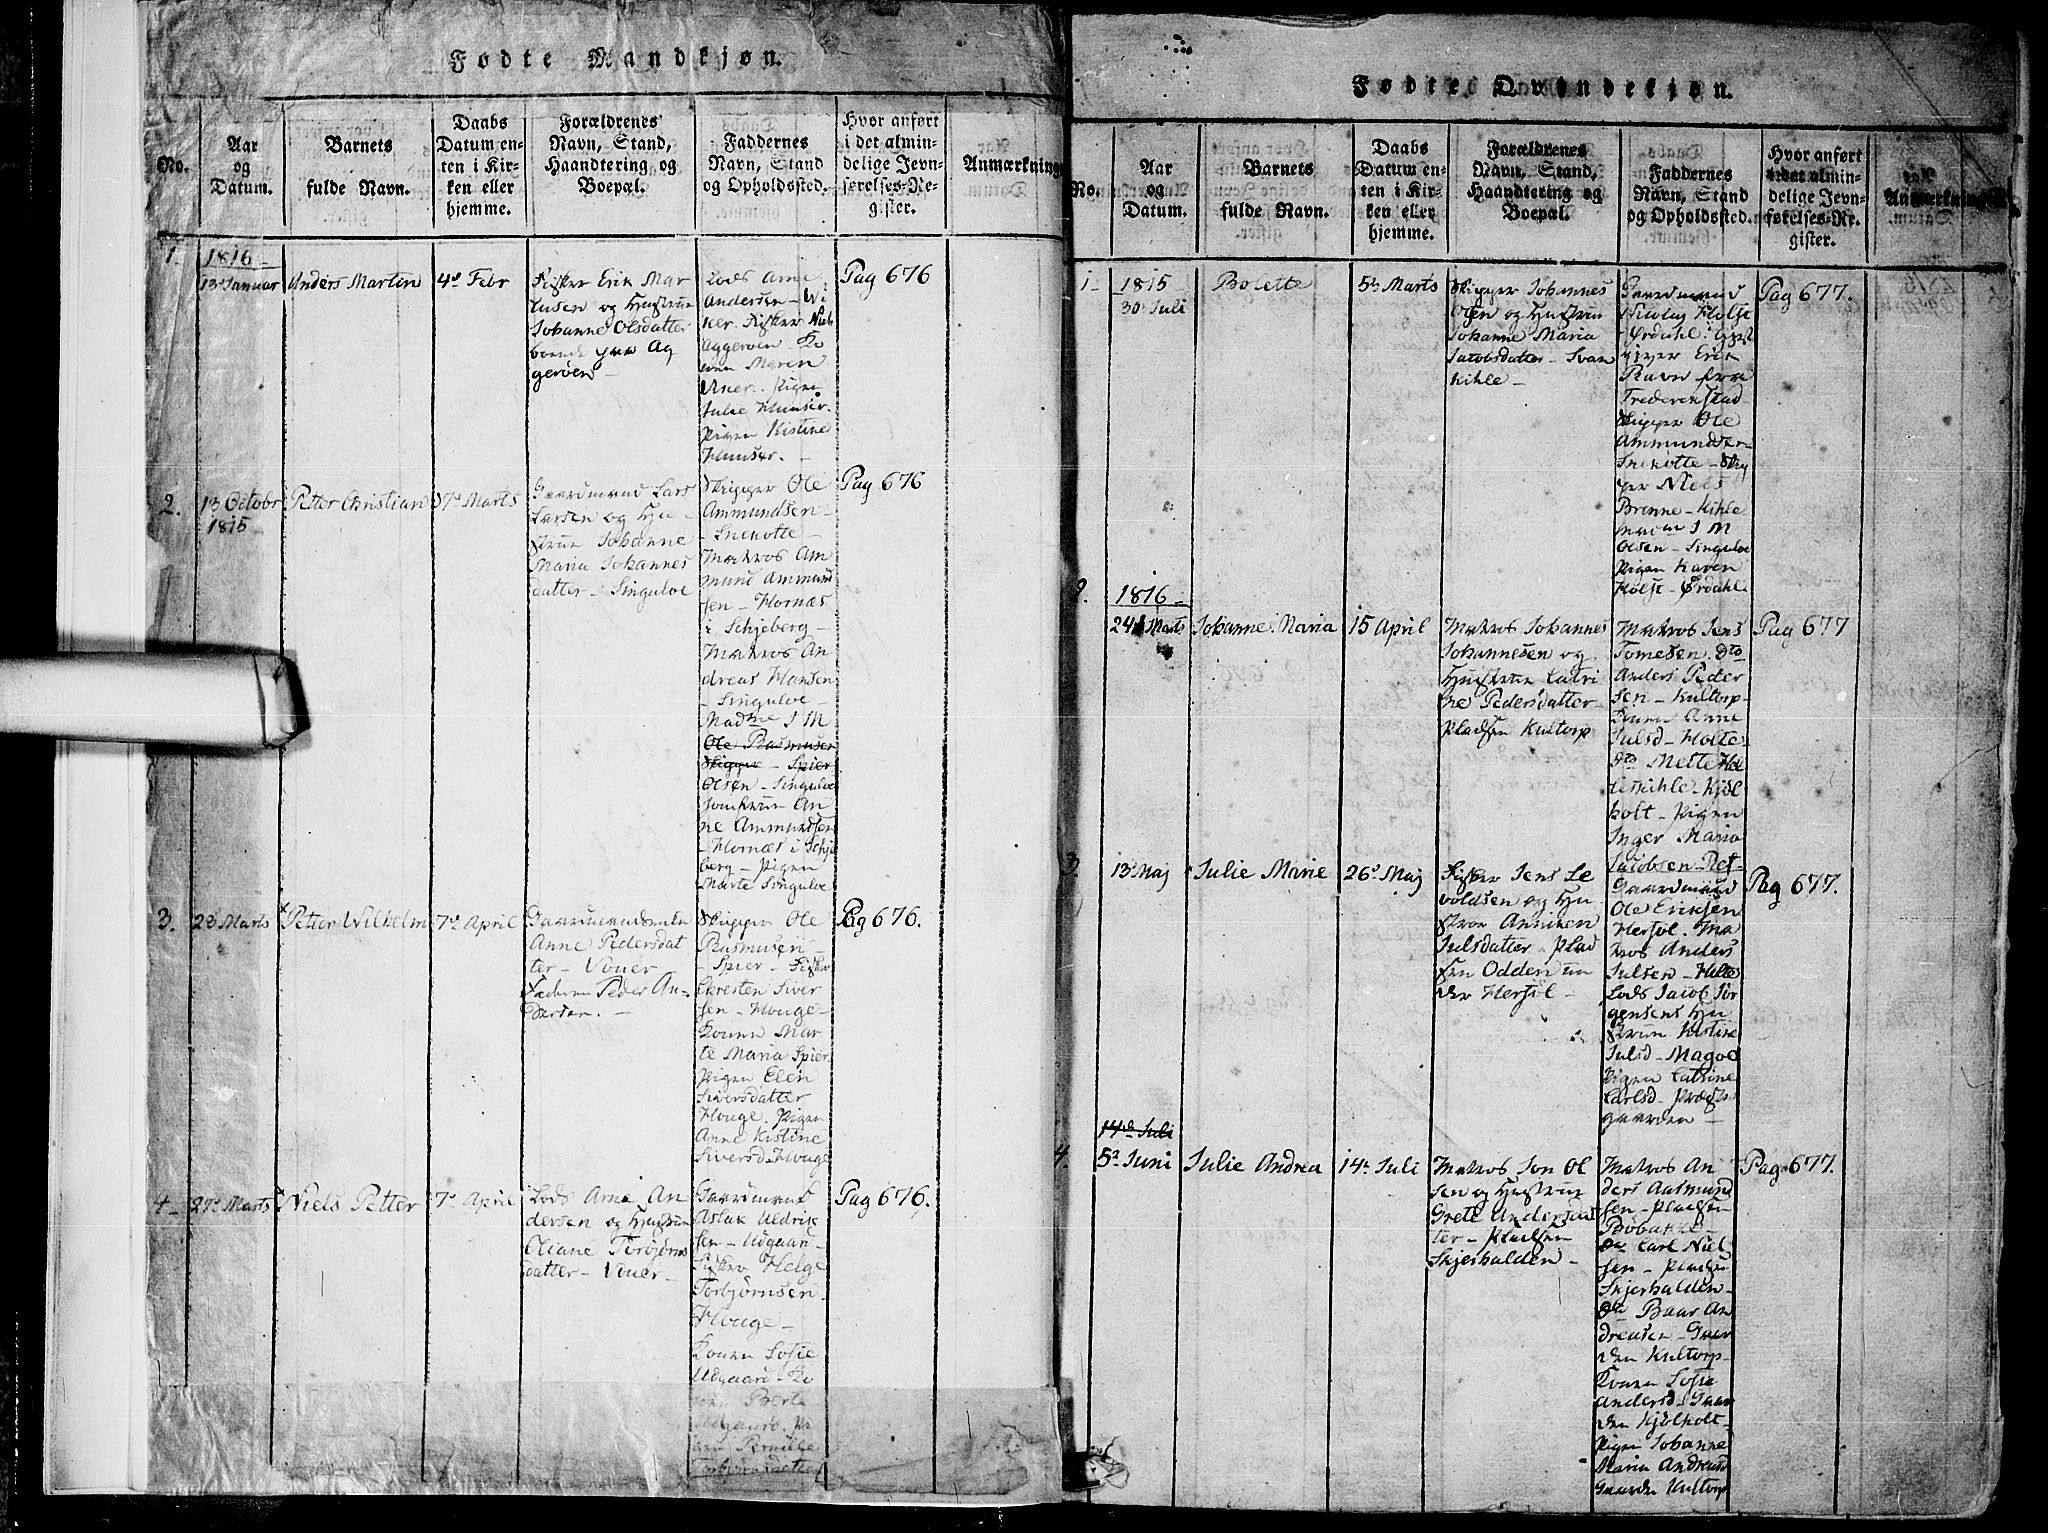 Fødte Mandkjøn.
No.
Aar
og
Datum.
Barnets
fulde Navn.
Daabs
Datum en-
ten i Kir-
ken eller
hjemme.
Forældrenes
Navn, Stand,
Haandtering og
Boepæl.
Faddernes
Navn, Stand
og Opholdssted.
Hvor anført
i det almin-
delige Jevn-
førelses-Re-
gister.
Anmærkning
1.
1816
13 Januar
Anders Martin
4d Febr
Fisker Erik Mar
tusen og Hustrue
Johanne Olsdatter
boende paa Ag
gerøen
Lods Arne
Andersen
Fisker Niels
Aggerøen
Maren
Pigen
Julie
Pigen Kistine
Pag 676
2.
13 Octobr
1815
Petter Christian
7d Marts
Gaardmand Lars
Larsen og Hu-
strue Johanne
Maria Johannes
datter - Singuloe
Skipper Ole
Ammundsen
- Snekotte -
Matros Am
mund Ammun
sen - Hornæs
i Schjeberg -
Matros An
dreas Hansen
- Singuloe -
Madme I M
Ole Rasmusen
Skipper - Spier
Olsen - Singuloe
Jomfrue An
ne Ammundsen
- Hornæs i Schje
berg - Pigen
Marte Singuloe
Pag 676
3.
23 Marts
Petter Wilhelm
7d April
Anne Pedersdat
ter - Viuer
Faderen Peder An-
dersen. -
Skipper Ole
Rasmusen
- Spier - Fisker
Chresten Siver
sen - Houge -
Konen Mar
te Maria Spier
Pigen Elen
Siversdatter
Houge. Pigen
Anne Kistine
Siversd. Houge
Pag 676.
4.
27d Marts
Niels Petter
7d April
Lods Arne An
dersen og Hustrue
Oliane Torbjørns
datter - Viuer -
Gaardmand
Aslak Uldrik
sen - Udgaard -
Fisker Helge
Torbjørnsen
Houge -
Konen Sofie
Udgaard - Ko
nen Berte
Udgaard. Pi
gen Pernille
Torbjørnsdatter
Pag 676.
Fødte Qvindekjøn.
No.
Aar
og
Datum.
Barnets
fulde Navn.
Daabs
Datum en-
ten i Kir-
ken eller
hjemme.
Forældrenes
Navn, Stand,
Haandtering og
Boepæl.
Faddernes
Navn, Stand
og Opholdssted.
Hvor anført
i det almin-
delige Jevn-
førelses-Re-
gister.
Anmærkning
1
1815
30 Juli
Bolette
5d Marts
Skipper Johannes
Olsen og Hustrue
Johanne Maria
Jacobsdatter - Svan
kihle -
Gaardmand
Nicolay Holst
Ørdahl.
Erik
Ravn fra
Frederikstad
Skipper Ole
Ammundsen
Snekotte - Skip
per Niels
Brenne - Kihle
Madme I M
Olsen - Singuloe
Pigen Karen
Holst - Ørdahl
Pag 677.
2.
1816
24 Marts
Johanne Maria
15 April
Matros Johannes
Johannesen og
Hustrue Catri
ne Pedersdatter
Pladsen Kultorp
Matros Jens
Tomesen dto
Anders Peder
sen - Kultorp -
Konen Anne
Julsd - Holte -
dto Mette Hel
holt - Pigen
Inger Maria
Jacobsen
Pag 677
3.
13 Maj
Julie Marie
26d Maj
Fisker Jens Le
voldsen og Hu
strue Anniken
Julsdatter - Plad
sen Odden un
der Hersøl -
Gaardmand
Ole Eriksen
Hersøl. Ma
tros Anders
Julsen - Holte
Lods Jacob Jør
gensens Hu
strue Kistine
Julsd - Magoe
Pigen Catrine
Carlsd - Præste
gaarden -
Pag 677.
14d Juli
4.
5d Juni
Julie Andrea
14d Juli
Matros Jon Ol
sen og Hustrue
Grete Andersdat
ter - Pladsen
Skjerhalden -
Matros An
ders Aasmund
sen - Pladsen
Bobakke -
do Carl Niel
sen - Pladsen
Skjerhalden -
do Baar An
dreasen - Gaar
den Kultorp -
Konen Sofie
Andersd - Gaar
den Kjølholt -
Pigen Johanne
Maria Andreasd
Gaarden Kultorp
Pag 677.